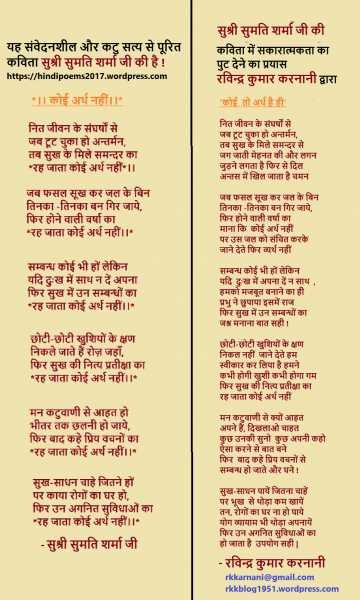 यह संवेदनशील और कटु सत्य से पूरित
कविता सुश्री सुमति शर्मा जी की है !
https://hindipoems2017.wordpress.com
*।। कोई अर्थ नहीं।।*
नित जीवन के संघर्षों से
जब टूट चुका हो अन्तर्मन,
तब सुख के मिले समन्दर का
*रह जाता कोई अर्थ नहीं*।।
जब फसल सूख कर जल के बिन
तिनका -तिनका बन गिर जाये,
फिर होने वाली वर्षा का
*रह जाता कोई अर्थ नहीं।।*
सम्बन्ध कोई भी हों लेकिन
यदि दुःख में साथ न दें अपना
फिर सुख में उन सम्बन्धों का
*रह जाता कोई अर्थ नहीं।।*
छोटी-छोटी खुशियों के क्षण
निकले जाते हैं रोज़ जहाँ,
फिर सुख की नित्य प्रतीक्षा का
*रह जाता कोई अर्थ नहीं।।*
मन कटुवाणी से आहत हो
भीतर तक छलनी हो जाये,
फिर बाद कहे प्रिय वचनों का
*रह जाता कोई अर्थ नहीं।।*
सुख-साधन चाहे जितने हों
पर काया रोगों का घर हो,
फिर उन अगनित सुविधाओं का
*रह जाता कोई अर्थ नहीं।।*
- सुश्री सुमति शर्मा जी
सुश्री सुमति शर्मा जी की
कविता में सकारात्मकता का
पुट देने का प्रयास
रविन्द्र कुमार करनानी द्वारा
'कोई तो अर्थ है ही'
नित जीवन के संघर्षों से
जब टूट चुका हो अन्तर्मन,
तब सुख के मिले समन्दर से
जग जाती मेहनत की और लगन
जुड़ने लगता है फिर से दिल
अन्तस में खिल जाता है चमन
जब फसल सूख कर जल के बिन
तिनका -तिनका बन गिर जाये,
फिर होने वाली वर्षा का
माना कि कोई अर्थ नहीं
पर उस जल को संचित करके
जाने देते फिर व्यर्थ नहीं
सम्बन्ध कोई भी हों लेकिन
यदि दुःख में अपना दें न साथ ,
हमको मजबूत बनाने का ही
प्रभु ने छुपाया इसमें राज
फिर सुख में उन सम्बन्धों का
जश्न मनाना बात सही !
छोटी-छोटी खुशियों के क्षण
निकल नहीं जाने देते हम
स्वीकार कर लिया है हमने
कभी होगी खुशी कभी होगा गम
फिर सुख की नित्य प्रतीक्षा का
रह जाता कोई अर्थ नहीं
मन कटुवाणी से क्यों आहत
अपने हैं, दिखलाओ चाहत
कुछ उनकी सुनो कुछ अपनी कहो
ऐसा करने से बात बने
फिर बाद कहे प्रिय वचनों से
सम्बन्ध हो जाते और घने !
सुख-साधन पायें जितना चाहें
पर भूख से थोड़ा कम खायें
तन, रोगों का घर ना हो पाये
योग व्यायाम भी थोड़ा अपनायें
फिर उन अगनित सुविधाओं का
हो जाता है उपयोग सही |
- रविन्द्र कुमार करनानी
rkkarnani@gmail.com
rkkblog1951.wordpress.com